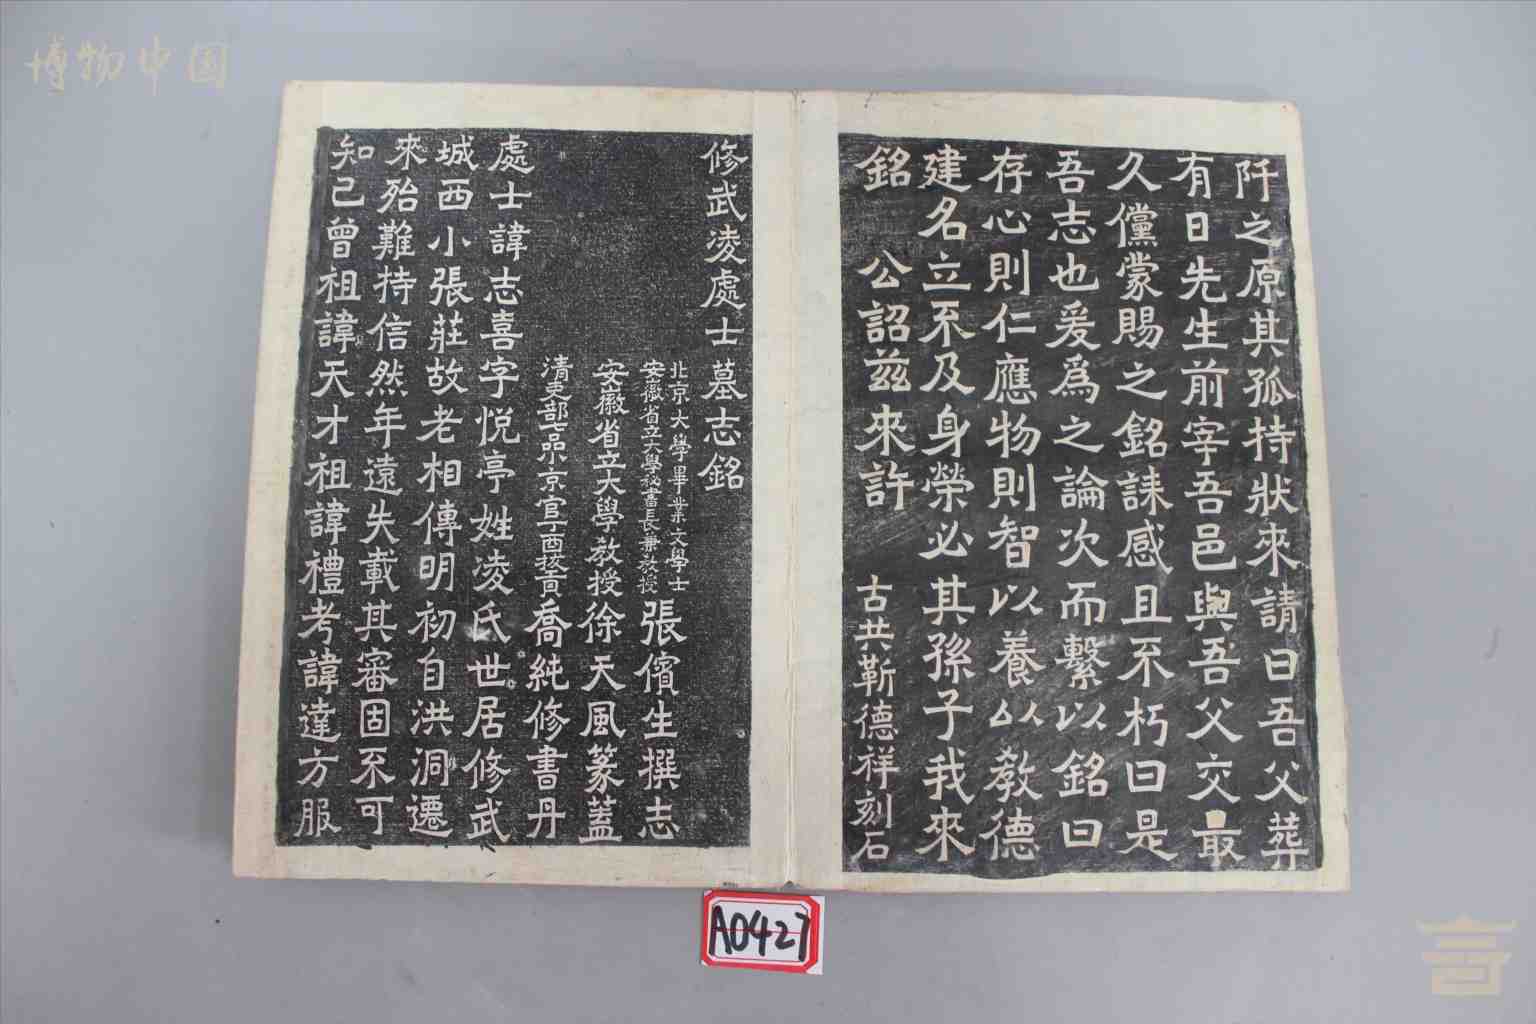 博物中国
阡之原其孤持狀來請曰吾父葬
有日先生前宰吾邑與吾父交最
久儻蒙賜之銘誄感且不朽曰是
吾志也爰為之論次而繫以銘曰
存心則仁應物則智以養以教德
建名立不及身榮必其孫子我來
銘 公詔茲來許 古共靳德祥刻石
修武凌處士墓志銘
北京大學畢業文學士
安徽省立大學秘書長兼教授 張儐生撰志
安徽省立大學教授徐天風篆蓋
清吏部七品小京官丁酉拔貢喬純修書丹
處士諱志喜字悅亭姓凌氏世居修武
城西小張莊故老相傳明初自洪洞遷
來殆難持信然年遠失載其審固不可
知已曾祖諱天才祖諱禮考諱達方服
A0427